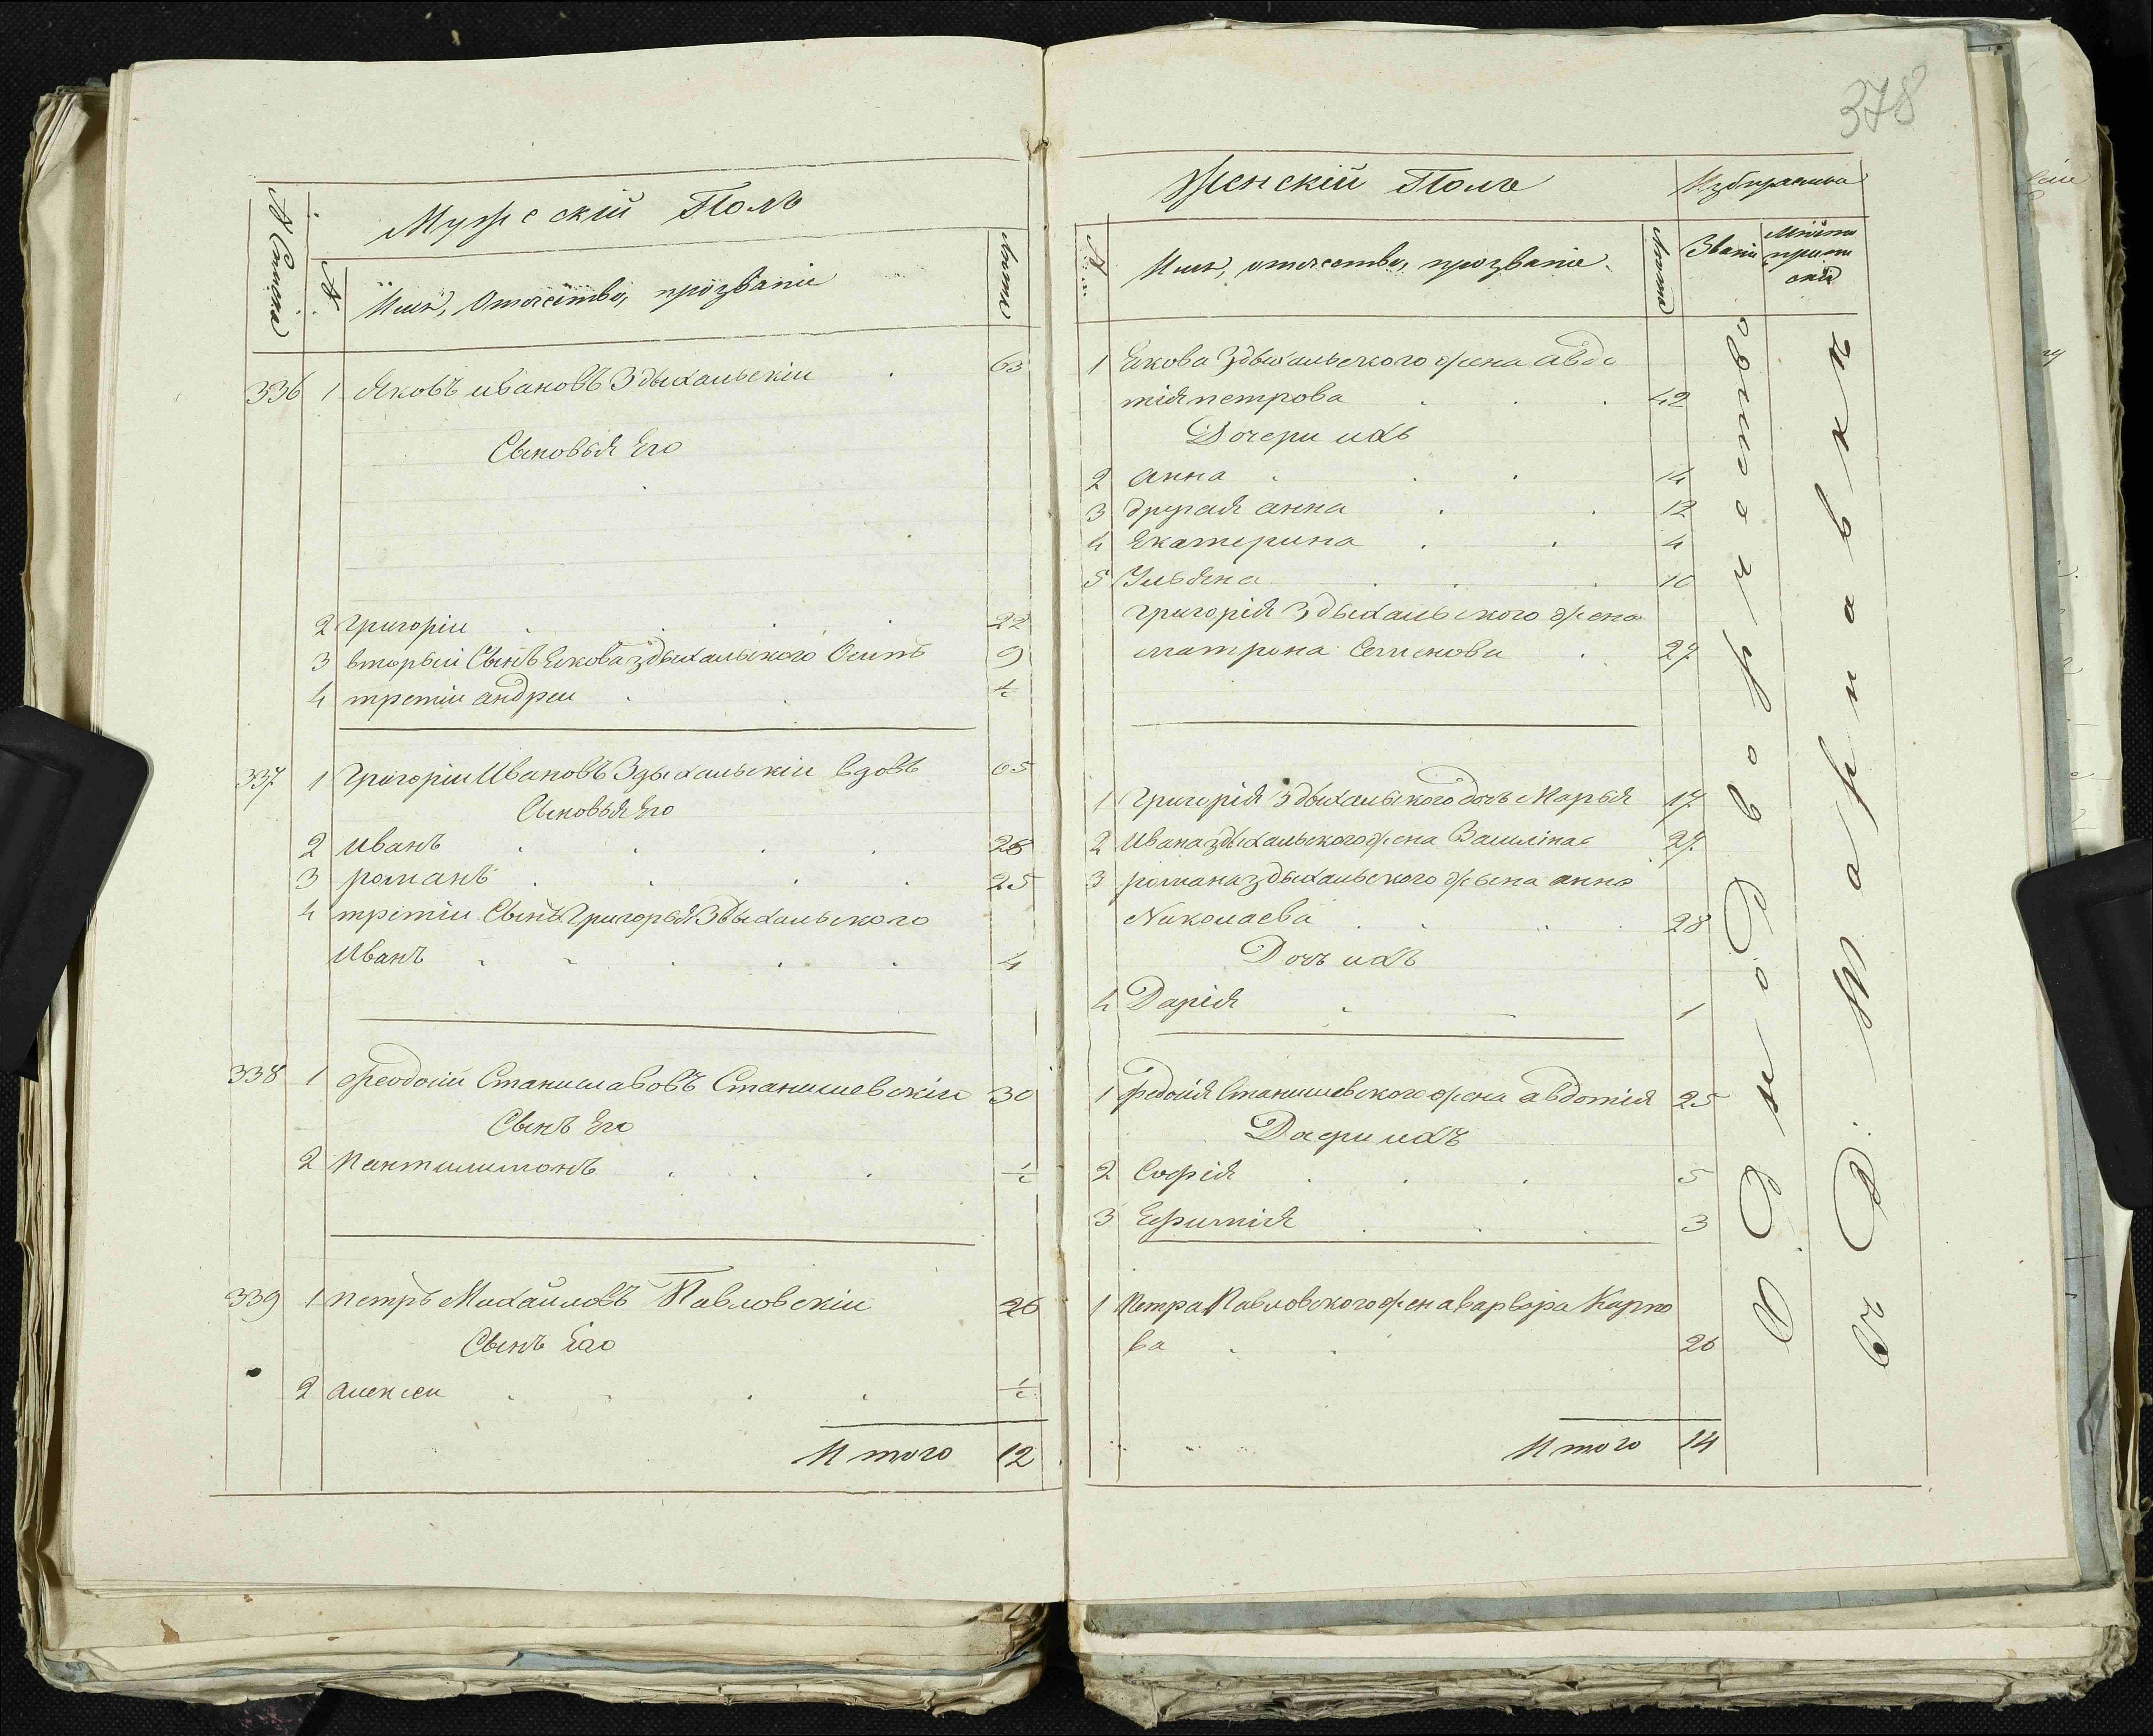 378
Мужескій Полъ
№ Семей
№
Имя, Отчество, прозваніе
Лета
336 1 Яковъ ивановъ Здыхальскіи 63
Сыновья Его
2 григоріи 22
3 вторыи Сынъ Якова здыхальского Осипъ 9
4 третіи андреи ½
337 1 Григоріи Ивановъ Здыхальскіи вдовъ 65
Сыновья Его
2 иванъ 26
3 романъ 25
4 третіи Сынъ Григорья Здыхальского
Иванъ 4
338 1 феодосіи Станиславовъ Станишевскіи 30
Сынъ Его
2 Пантилимонъ ½
339 1 петръ Михаиловъ Павловскіи 26
Сынъ Его
2 алексеи ½
Итого 12
Женскій Полъ
Избираемые
№
Имя, отчество, прозваніе
Лета
Званіе
Место
припи
ски
1 Якова Здыхальского жена авдо
тія петрова 42
Дочери ихъ
2 анна 14
3 другая анна 12
4 Екатерина 4
5 Ульяна 10
григорія Здыхальского жена
матрона Семенова 27
1 Григорія Здыхальского дочь Марья 17
2 Ивана здыхальского жена 27
3 романа здыхальского жена анна
Николаева 28
Дочъ ихъ
4 Дарія 1
1 федосія Станишевского жена авдотія 25
Дочери ихъ
2 Софія 5
3 Ефимія 3
1 Петра Павловского жена варвара Карпо
ва 26
Итого 14
Однодворчество
въ Д. Шарпавкк